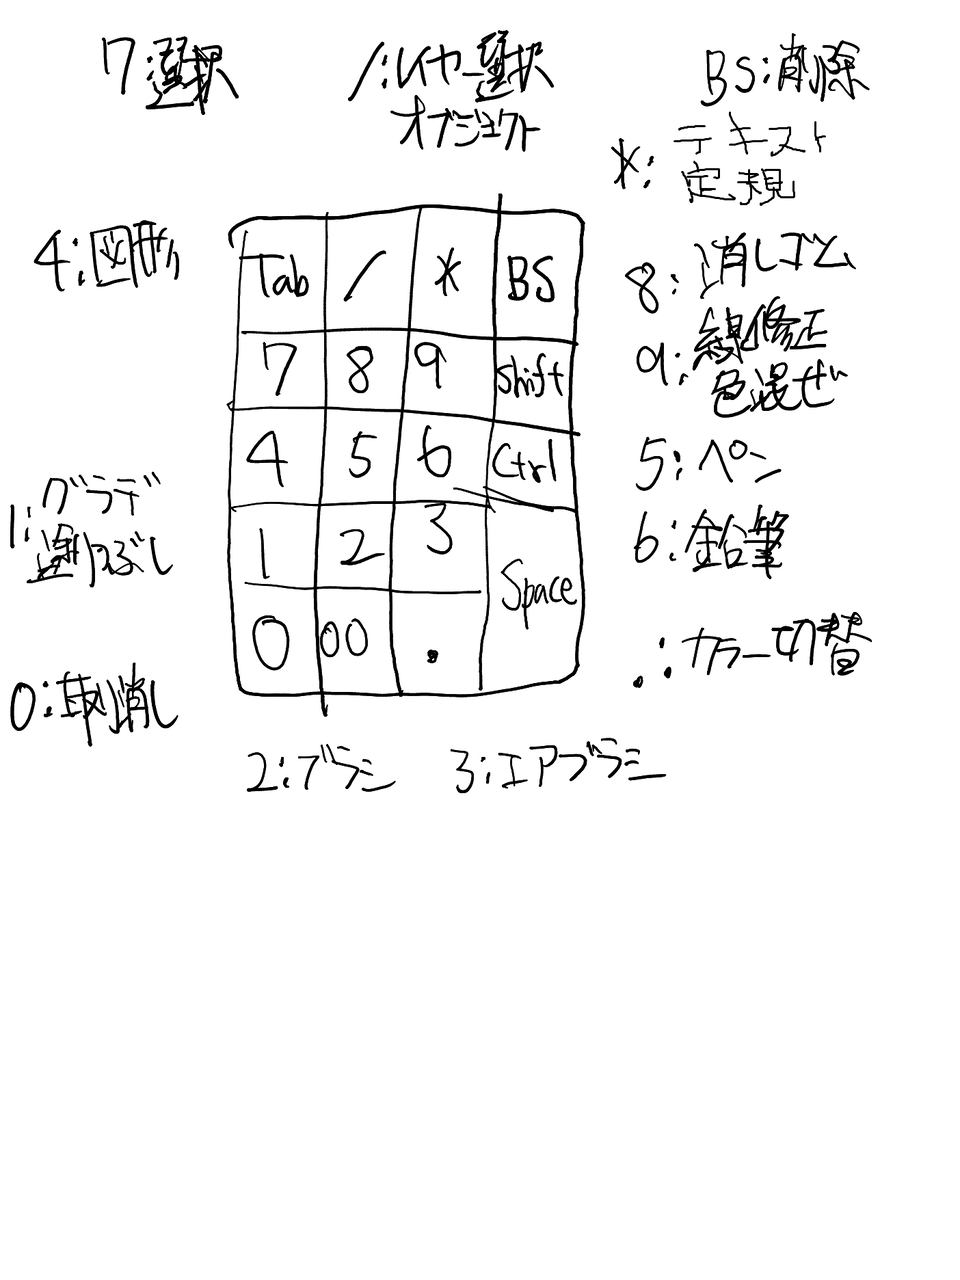 7:選択
/:レイヤー選択
オブジェクト
BS:削除
*:テキスト
定規
4:図形
8:消しゴム
9:線修正
色混ぜ
Tab / * BS
7 8 9 Shift
4 5 6 Ctrl
1 2 3 Space
0 00 .
5:ペン
6:鉛筆
1:グラデ
塗りつぶし
.:カラー切替
0:取り消し
2:ブラシ
3:エアブラシ